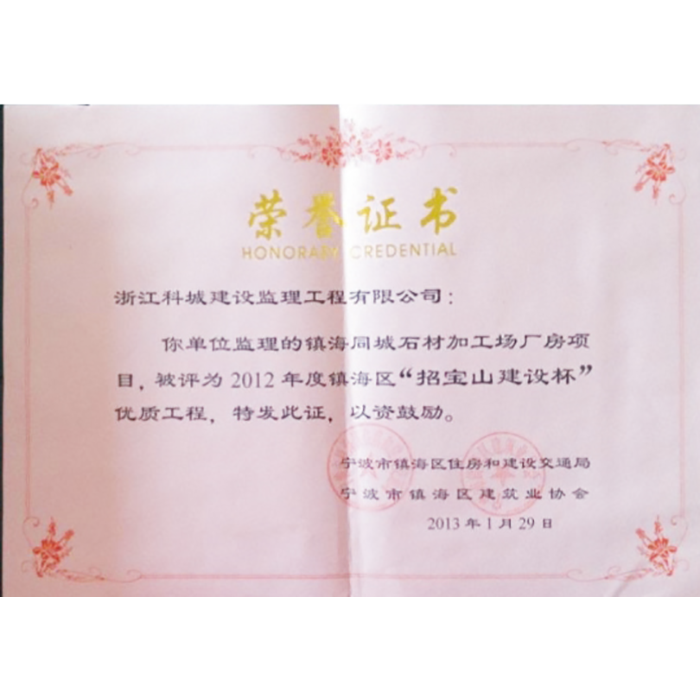 荣誉证书
HONORARY CREDENTIAL
浙江科城建设监理工程有限公司：
你单位监理的镇海同城石材加工场厂房项
目，被评为2012年度镇海区“招宝山建设杯”
优质工程，特发此证，以资鼓励。
宁波市镇海区住房和建设交通局
宁波市镇海区建筑业协会
2013年1月29日